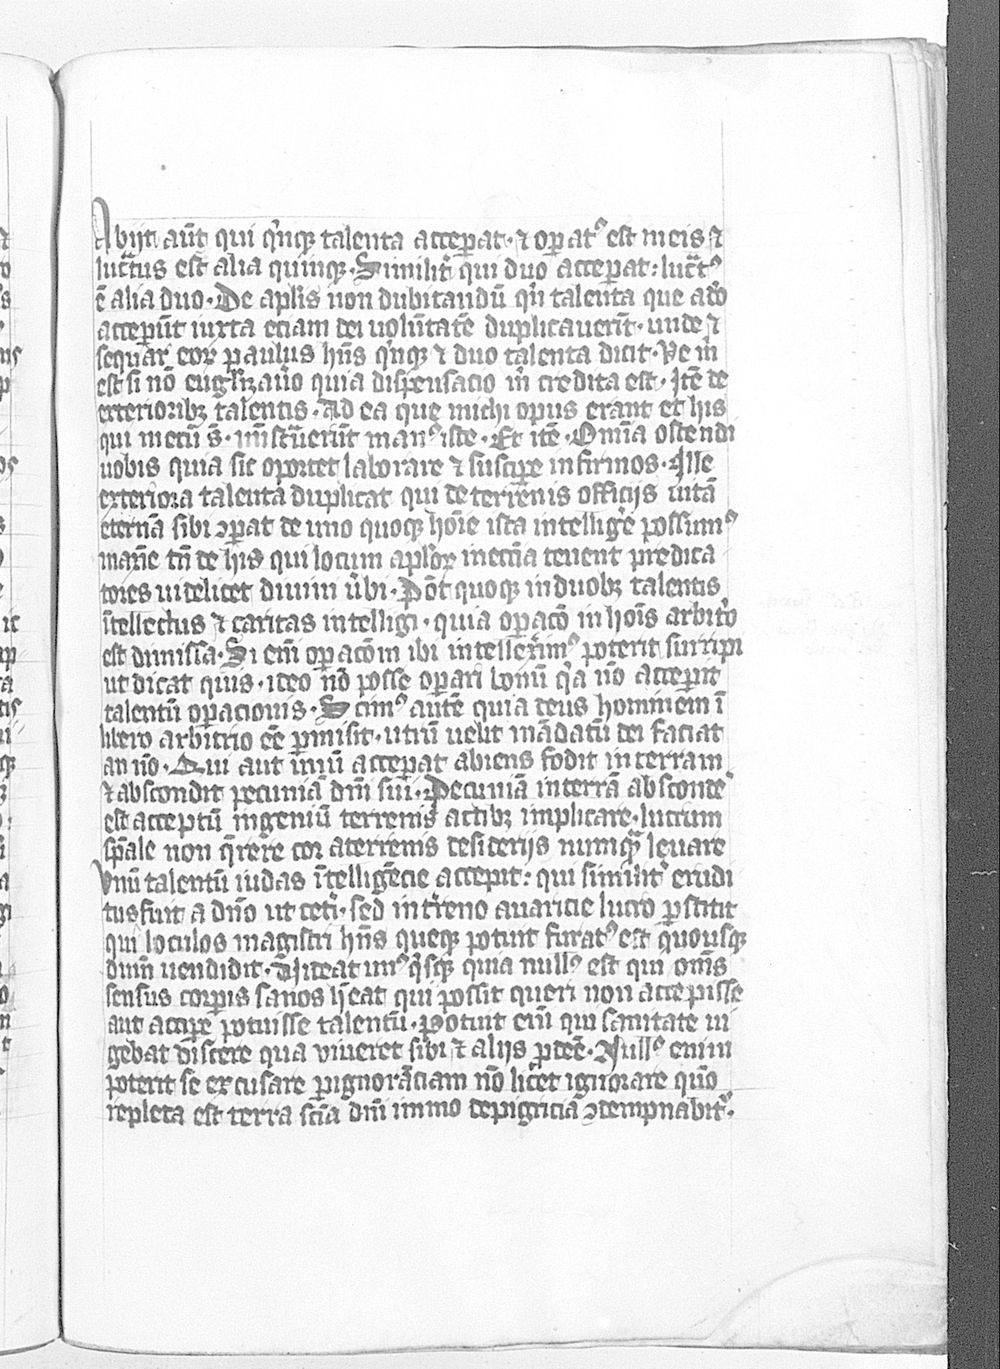 Abijt aūt qui qⁱnqꝫ talenta acceꝑat · ⁊ oꝑatꝰ est in eis ⁊
lucᵃtus est alia quinqꝫ · Similit̾ qui duo acceꝑat : lucᵃtꝰ
ē alia duo · De aplis non dubitandū qⁱn talenta que a dño
acceꝑūt iuxta eciam dei uolūtatē duplicauerīt · unde ⁊
sequax eoꝝ paulus hñs qⁱnqꝫ ⁊ duo talenta dicit · Ve mⁱ
est si nō euglizauᵒ quia dispensacio mⁱ credita est · Itē de
exterioribꝫ talentis · Ad ea que michi opus erant et his
qui mecū s̄ · mīstᵃuerūt manꝰ iste · Et itē · Omīa ostendi
uobis quia sic oportet laborare ⁊ susciꝑe infirmos · Ille
exteriora talenta duplicat qui de terrenis officijs uitā
eternā sibi ꝯꝑat de uno quoqꝫ hoīe ista intelligᵉe possumꝰ
maxīe tn̄ de his qui locum aploꝝ in ecc̄ia tenent predica
tores uidelicet diuini ūbi · Pōt quoqꝫ in duobꝫ talentis
ītellectus ⁊ caritas intelligi · quia oꝑacō in hoīs arbitᵒ
est dimissa · Si em̄ oꝑacōm ibi intellexᵉimꝰ poterit surripi
ut dicat quis · ideo nō posse oꝑari bonū qᵃ nō acceꝑit
talentū oꝑacionis · Scimꝰ autē quia deus hominem ī
libero arbitrio eē ꝑmisit · utrū uelit mādatū dei faciat
an nō · Qui aut̄ unū acceꝑat abiens fodit in terram
⁊ abscondit pecuniā dn̄i sui · Pecuniā in terrā abscondᵉe
est acceptū ingeniū terrenis actibꝫ implicare · lucrum
sp̄ale non qᵉrere cor a terrenis desiderijs numqᵃ leuare
Vnū talentū iudas ītelligēcie accepit : qui similit̾ erudi
tus fuit a dn̄o ut cetⁱ · sed in tᵉreno auaricie lucro ꝑstitit
qui loculos magistri hn̄s queqꝫ potuit furatꝰ est quousqꝫ
dūm uendidit · Uideat unꝰqⁱsqꝫ quia nullꝰ est qui om̄s
sensus corpis sanos hēat qui possit queri non accepisse
aut acciꝑe potuisse talentū · Potuit em̄ qui sanitate ui
gebat discere qua viueret sibi ⁊ alijs ꝓdeē · Nullꝰ enim
poterit se excusare ꝑ ignorāciam nō licet ignorare quō
repleta est terra scīa dn̄i immo de pigricia ꝯtempnabit̾ ·